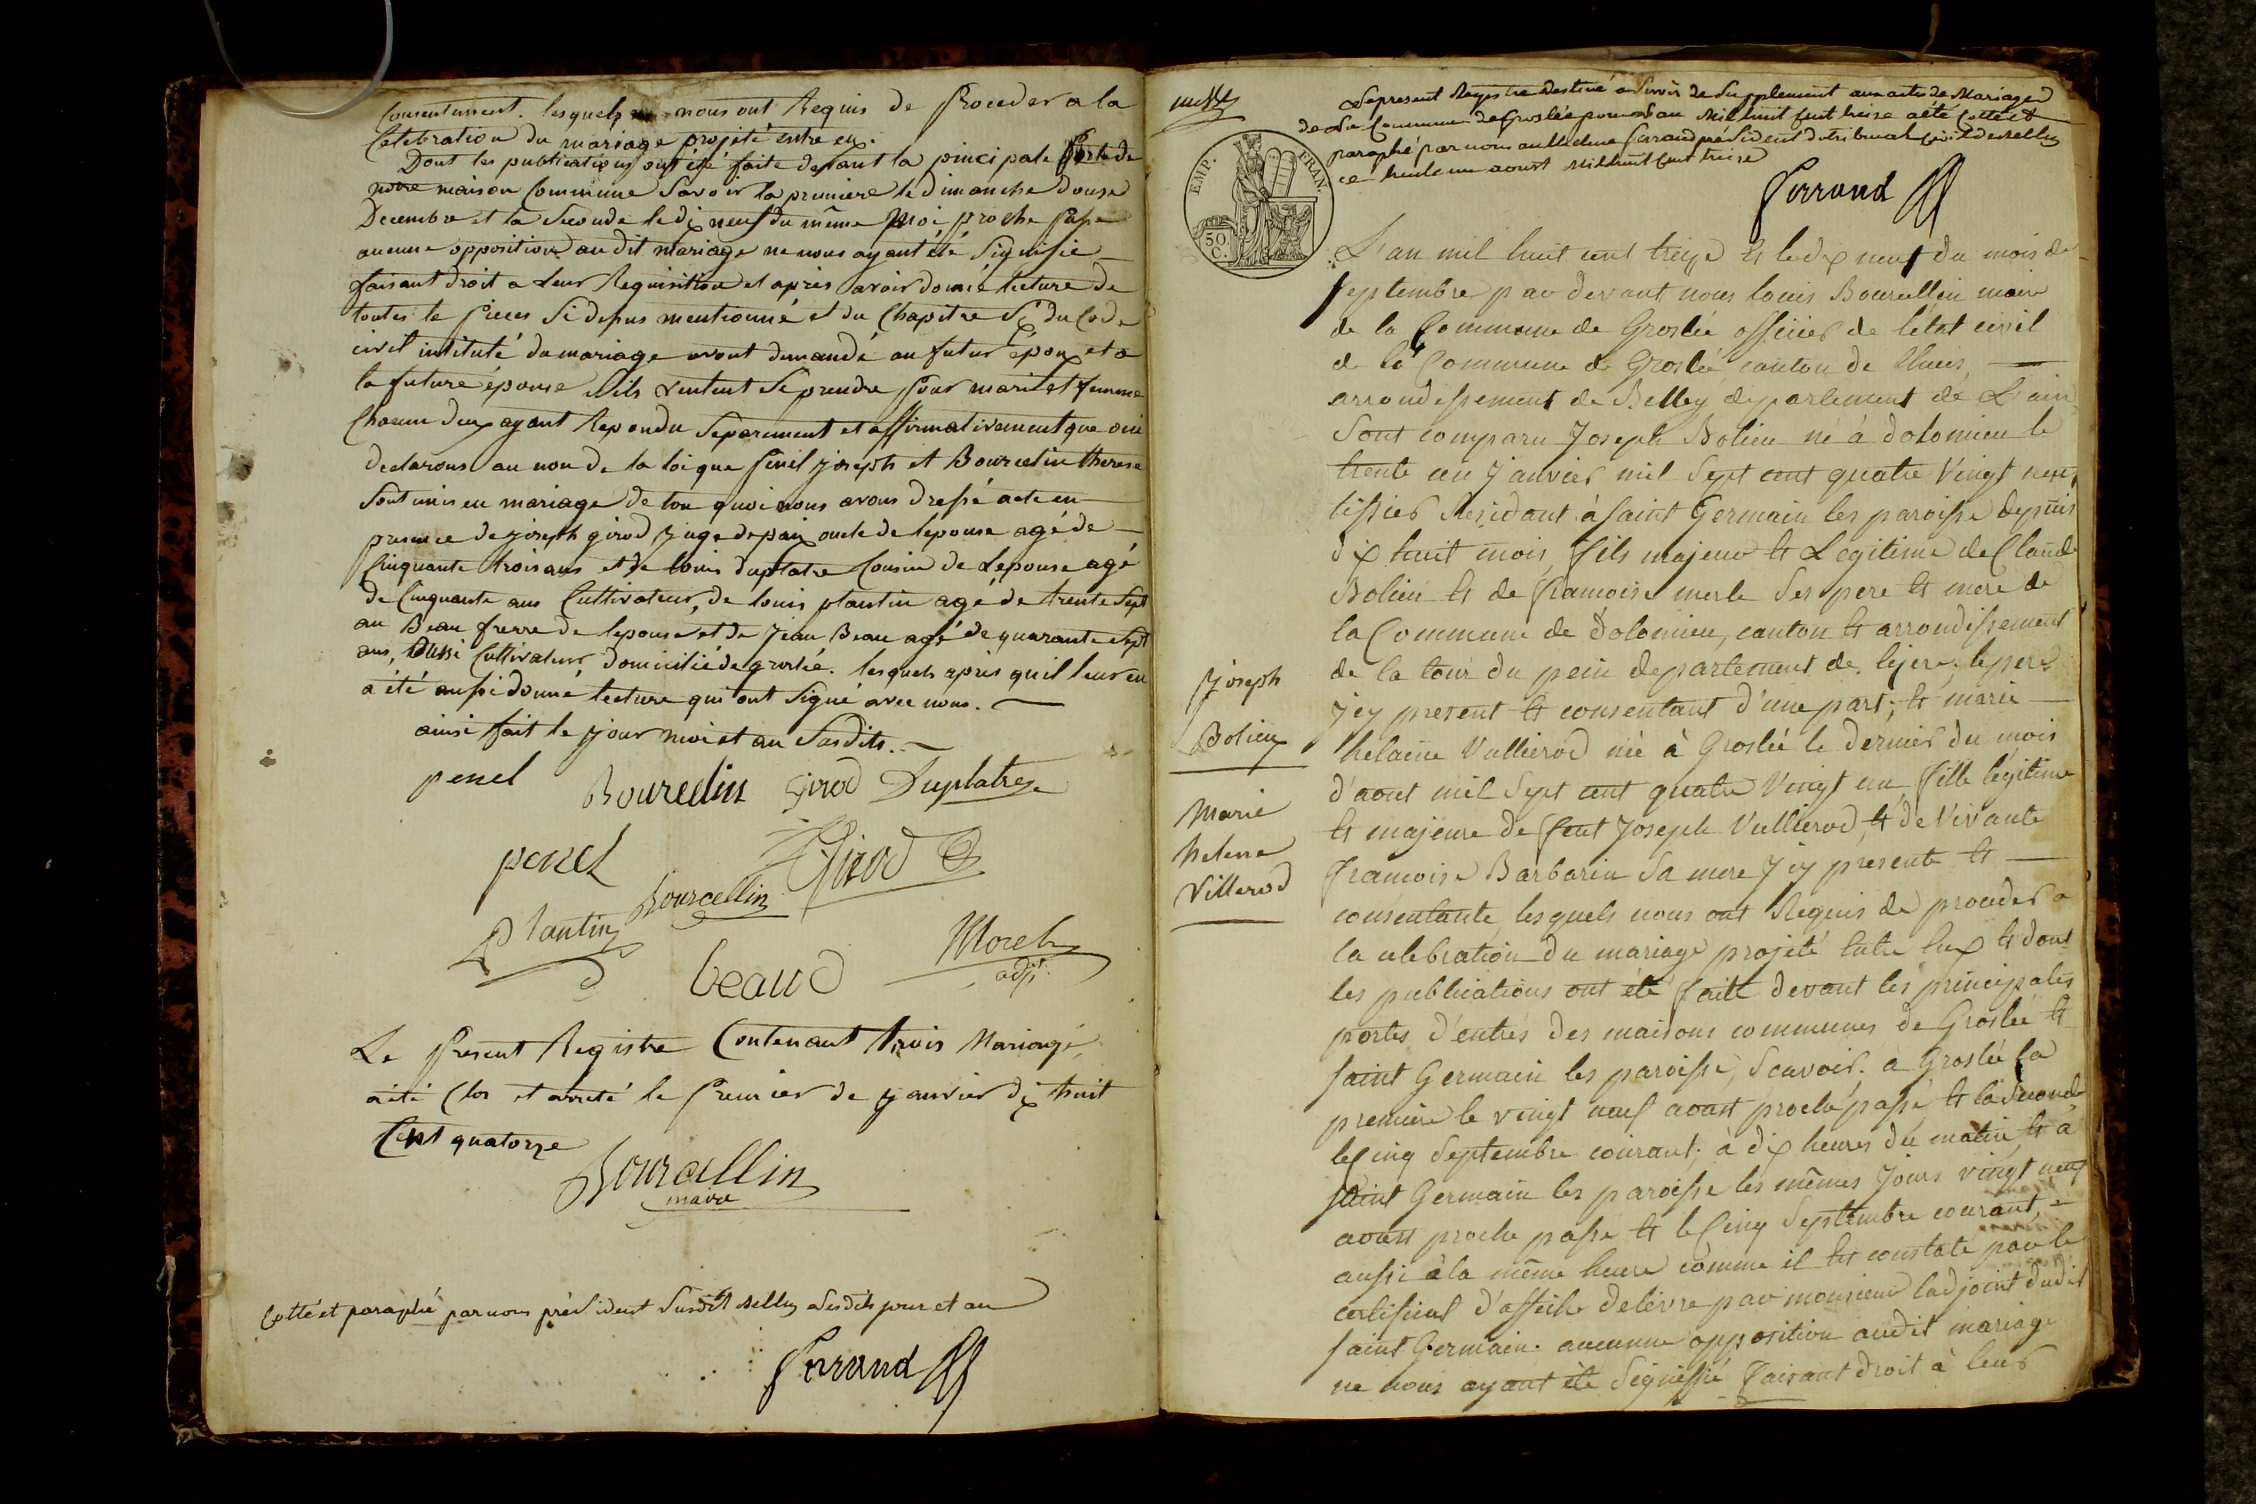 Consentement. lesquels nous ont Requis de Proceder a la
Celebration du mariage projeté entre eux.
Dont les publications ont été faite devant la pincipale Porte de
notre maison Commune Savoir la premiere le dimanche douse
Decembre et la Seconde le dix neuf du même Moi, proche passe
aucune opposition au dit mariage ne nous ayant été Signifie
faisant droit a Leur Requisition et apres avoir donné lecture de
toutes le Pieces Si depus mentionné et du Chapitre Six du Code
civil intituté du mariage avont demandé au futur époux et a
la future épouse Sils veulent Se prendre pour mari et femme
Chacun deux ayant Repondu Separement et affirmativement que oui
declarons au non de la loi que penel joseph et Bourcelin therese
Sont unis en mariage de tou quoi nous avons dressé acte en
presence de joseph girod juge de paix oncle de lepouse agé de
Cinquante trois ans et de louis duplatre Cousin de Lepouse agé
de Cinquante ans Cultivateur, de louis plantin agé de trente Sept
an Beau frerre de lepouse et de Jean Beau agé de quarante Sept
ans, aussi Cultivateur domicilié de groslée. lesquels apres quil leur en
a été aussi donné lecture qui ont Signé avec nous.
ainsi fait le jour moi et an Susdits.
penel Bourcelin Girod Duplatre
penel Girod
Plantin Bourcellin
beaud Morel
adjt
Le Present Registre Contenant trois Mariage,
a été Clos et arreté le Premier de janvier dix huit
Cent quatorze
Bourcellin
maire
Cotté et paraphé par nous président Susdit Belley Lesdits jour et an
Ferrand
Le present Registre destiné a Servir de Supplement aux actes de Mariage
de la Commune de Groslée pour l'an Mil huit cent treize a été Cotté et
paraphé par nous Ferrand président du tribunal Civil de Belley
ce trente un aoust Mil huit cent treize
Ferrand
EMP. FRAN.
50
C.
L'an mil huit cent treize et le dix neuf du mois de
septembre par devant nous louis Bourcellin maire
de la Commune de Groslée officier de l'état civil
de la Commune de Groslée canton de Lhuis,
arrondissement de Belley departement de L'ain
Sont comparu Joseph Bolieu né à dolomieu le
trente un janvier mil Sept cent quatre Vingt neuf
tissier Residant à Saint Germain les paroisse depuis
dix huit mois, fils majeur et Legitime de Claude
Bolieu et de francoise merle Ses pere et mere de
la Commune de dolomieu, canton et arrondissement
de la tour du pein departement de lisere, le pere
Joseph
Bolieu
jcy present et consentant d'une part; et marie
helaine Vullierod née à Groslée le dernier du mois
d'aout mil Sept cent quatre Vingt un, fille legitime
Marie
helene
Villerod
et majeure de feut Joseph Vullierod, et de Vivante
francoise Barbarin Sa mere jcy présente et
consentante, lesquels nous ont Requis de proceder a
la celebration du mariage projeté Entre Eux et dont
les publications ont été faitte devant les principales
portes d'entrés des maisons communes de Groslée et
saint Germain les paroisse, Scavoir. a Groslée la
premiere le vingt neuf aoust proche passé et la Seconde
le Cinq Septembre courant; à dix heures du matin, et à
saint Germain les paroisse les mêmes Jours vingt neuf
aoust proche passé et le Cinq Septembre courant,
aussi à la même heure comme il Est constaté par le
certificat d'affiche delivre par monsieur ladjoint dudit
saint Germain. aucunne opposition audit mariage
ne nous ayant été Signiffié faisant droit à leur